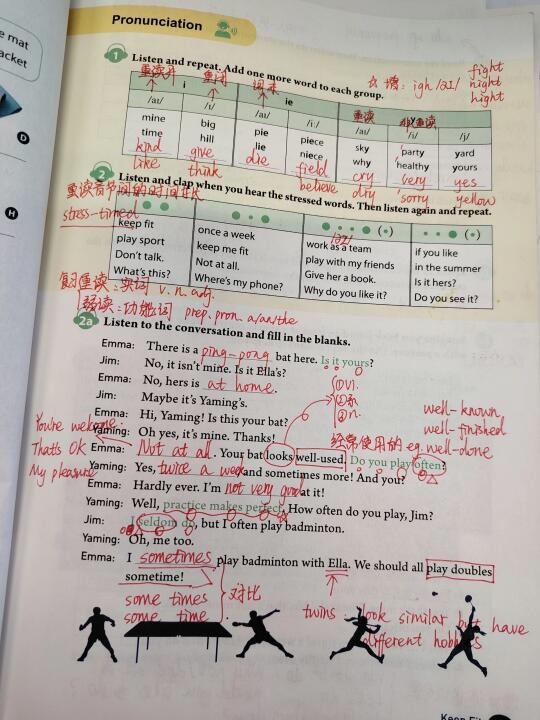 e mat
acket
D
H
Pronunciation
1 Listen and repeat. Add one more word to each group.
重读开
重闭
词末
☆ 增: igh /aɪ/
fight
night
hight
i
ie
重读
非重读
/aɪ/ /ɪ/ /aɪ/ /iː/ /aɪ/ /i/ /j/
mine big pie piece sky 'party yard
time hill lie niece why 'healthy yours
kind give die field cry very yes
like think believe dry 'sorry yellow
2 Listen and clap when you hear the stressed words. Then listen again and repeat.
重读音节间的时间
stress-timed
keep fit once a week work as a team if you like
/əz/
play sport keep me fit play with my friends in the summer
Don't talk. Not at all. Give her a book. Is it hers?
What's this? Where's my phone? Why do you like it? Do you see it?
复习重读:实词 v. n. adj.
弱读:功能词 prep. pron. a/an/the
2a Listen to the conversation and fill in the blanks.
Emma: There is a ping-pong bat here. Is it yours?
Jim: No, it isn't mine. Is it Ella's?
Emma: No, hers is at home.
Jim: Maybe it's Yaming's.
Emma: Hi, Yaming! Is this your bat?
Yaming: Oh yes, it's mine. Thanks!
Emma: Not at all. Your bat looks well-used. Do you play often?
Yaming: Yes, twice a week and sometimes more! And you?
Emma: Hardly ever. I'm not very good at it!
Yaming: Well, practice makes perfect. How often do you play, Jim?
Jim: I seldom do, but I often play badminton.
Yaming: Oh, me too.
Emma: I sometimes play badminton with Ella. We should all play doubles
sometime!
You're welcome.
That's OK
My pleasure
① vi.
② 系
③ n.
well-known
well-finished
经常使用的 eg. well-done
some times
some time
对比
twins. look similar but have
different hobbies
Keep Fit